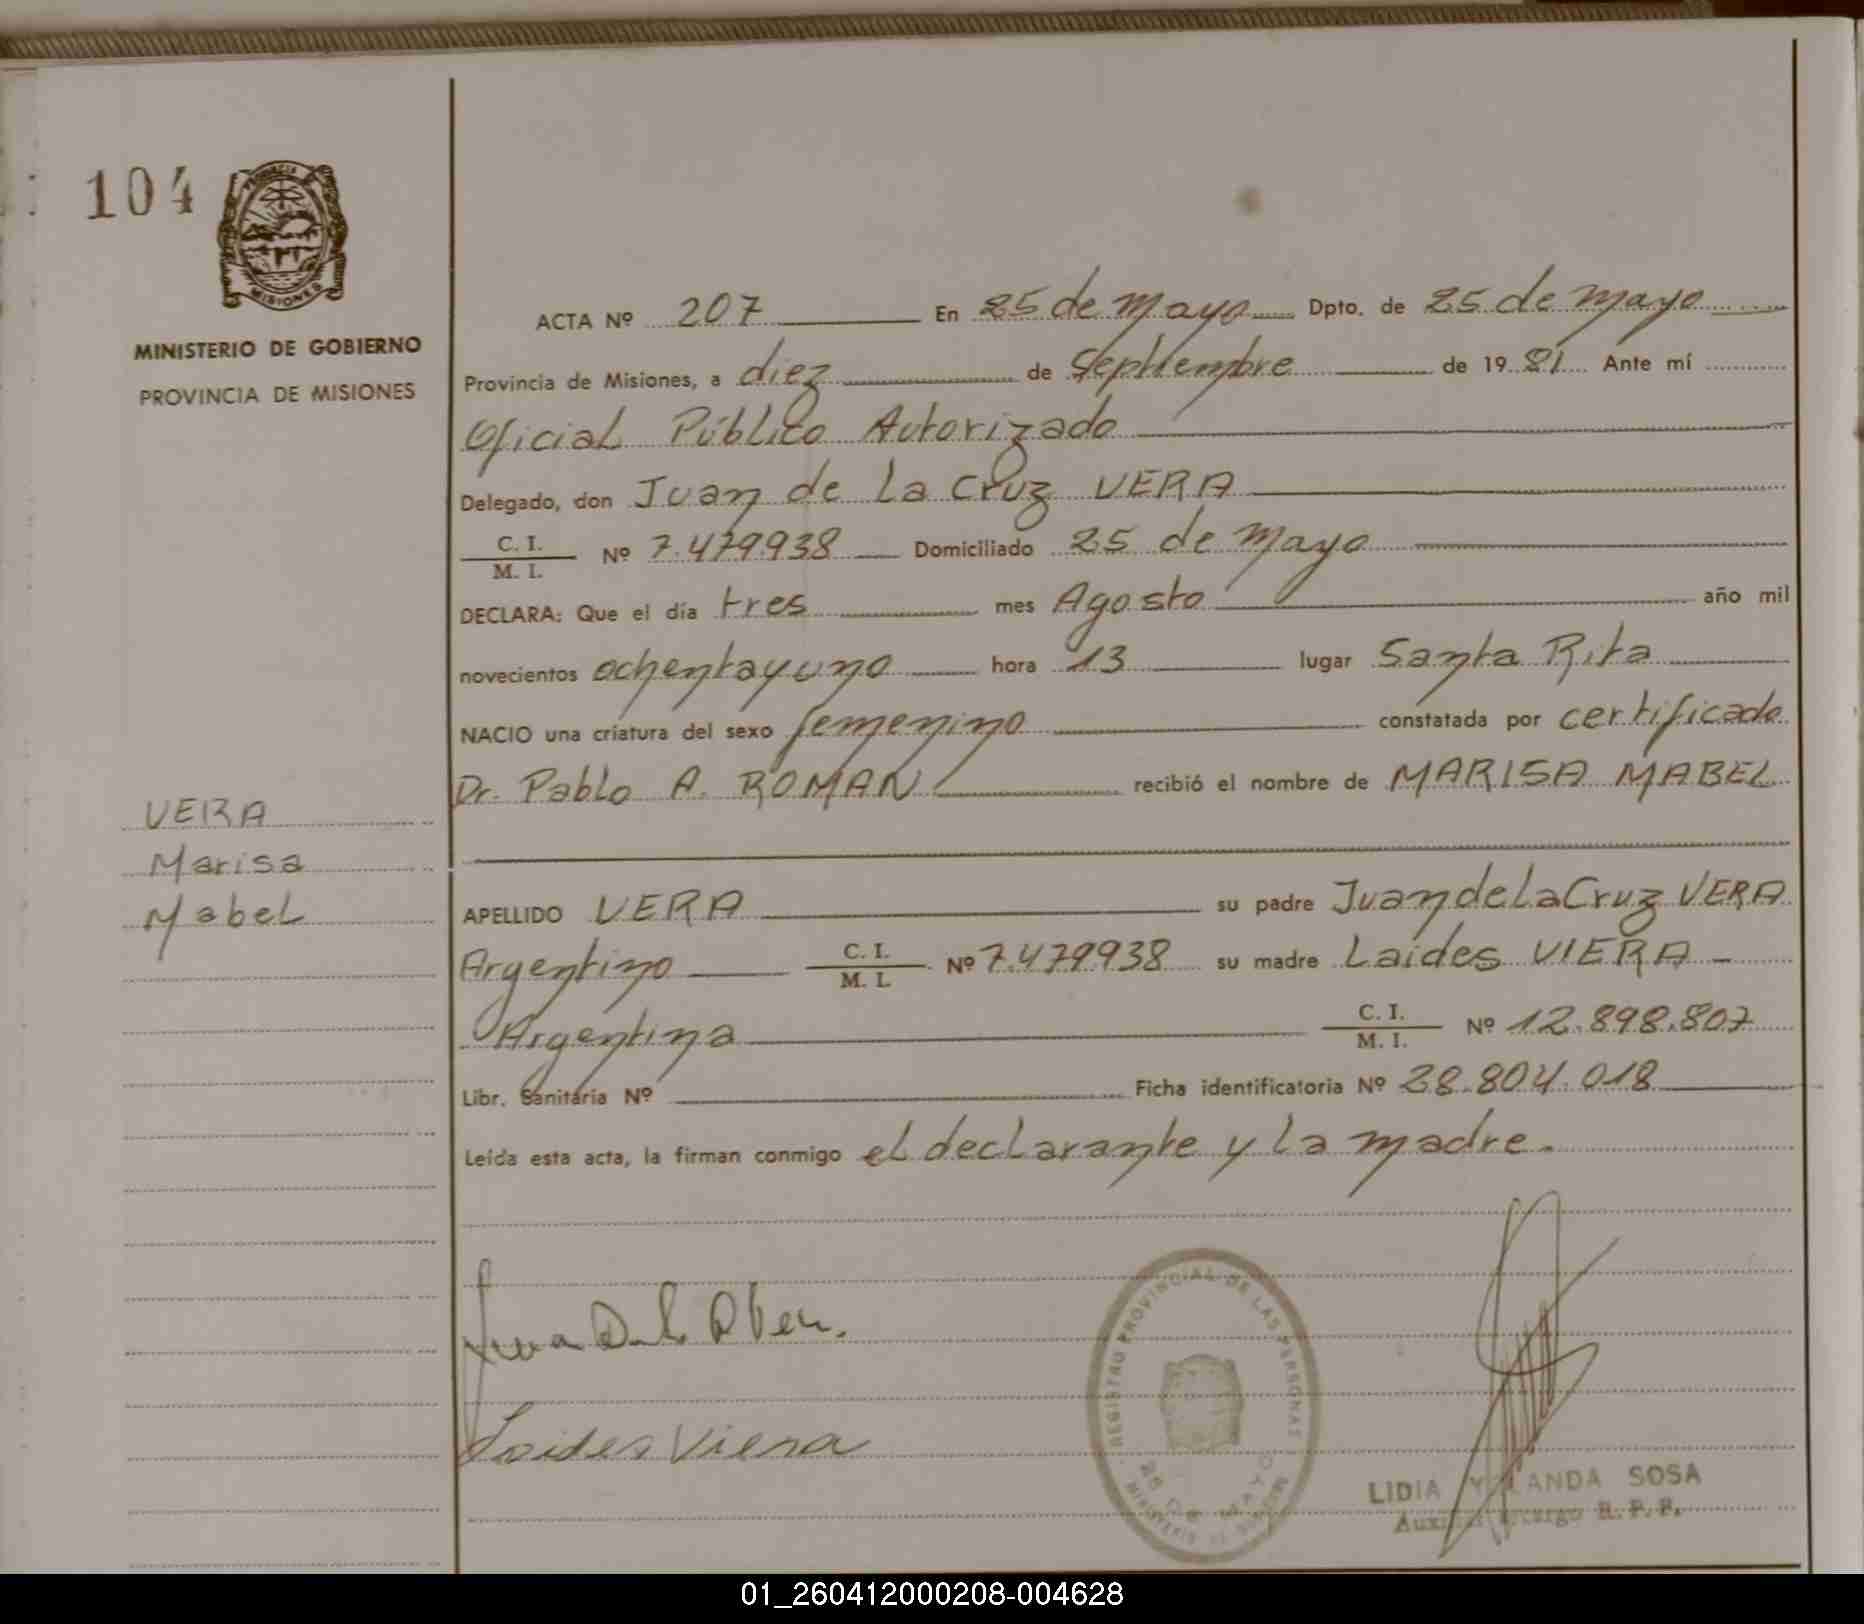 104
PROVINCIA DE
MISIONES
MINISTERIO DE GOBIERNO
PROVINCIA DE MISIONES
VERA
Marisa
Mabel
ACTA Nº 207 En 25 de Mayo Dpto. de 25 de Mayo
Provincia de Misiones, a diez de Septiembre de 1981 Ante mí
Oficial Público Autorizado
Delegado, don Juan de La Cruz VERA
C. I. / M. I. Nº 7.479938 Domiciliado 25 de Mayo
DECLARA: Que el día tres mes Agosto año mil
novecientos ochentayuno hora 13 lugar Santa Rita
NACIO una criatura del sexo femenino constatada por certificado
Dr. Pablo A. ROMAN recibió el nombre de MARISA MABEL
APELLIDO VERA su padre Juan de La Cruz VERA
Argentino C. I. / M. I. Nº 7.479938 su madre Laides VIERA
Argentina C. I. / M. I. Nº 12.898.807
Libr. Sanitaria Nº Ficha identificatoria Nº 28.804.018
Leída esta acta, la firman conmigo el declarante y la madre.
Laides Viera
REGISTRO PROVINCIAL DE LAS PERSONAS
25 DE MAYO
MINISTERIO DE GOBIERNO
LIDIA YOLANDA SOSA
R. P. P.
01_260412000208-004628